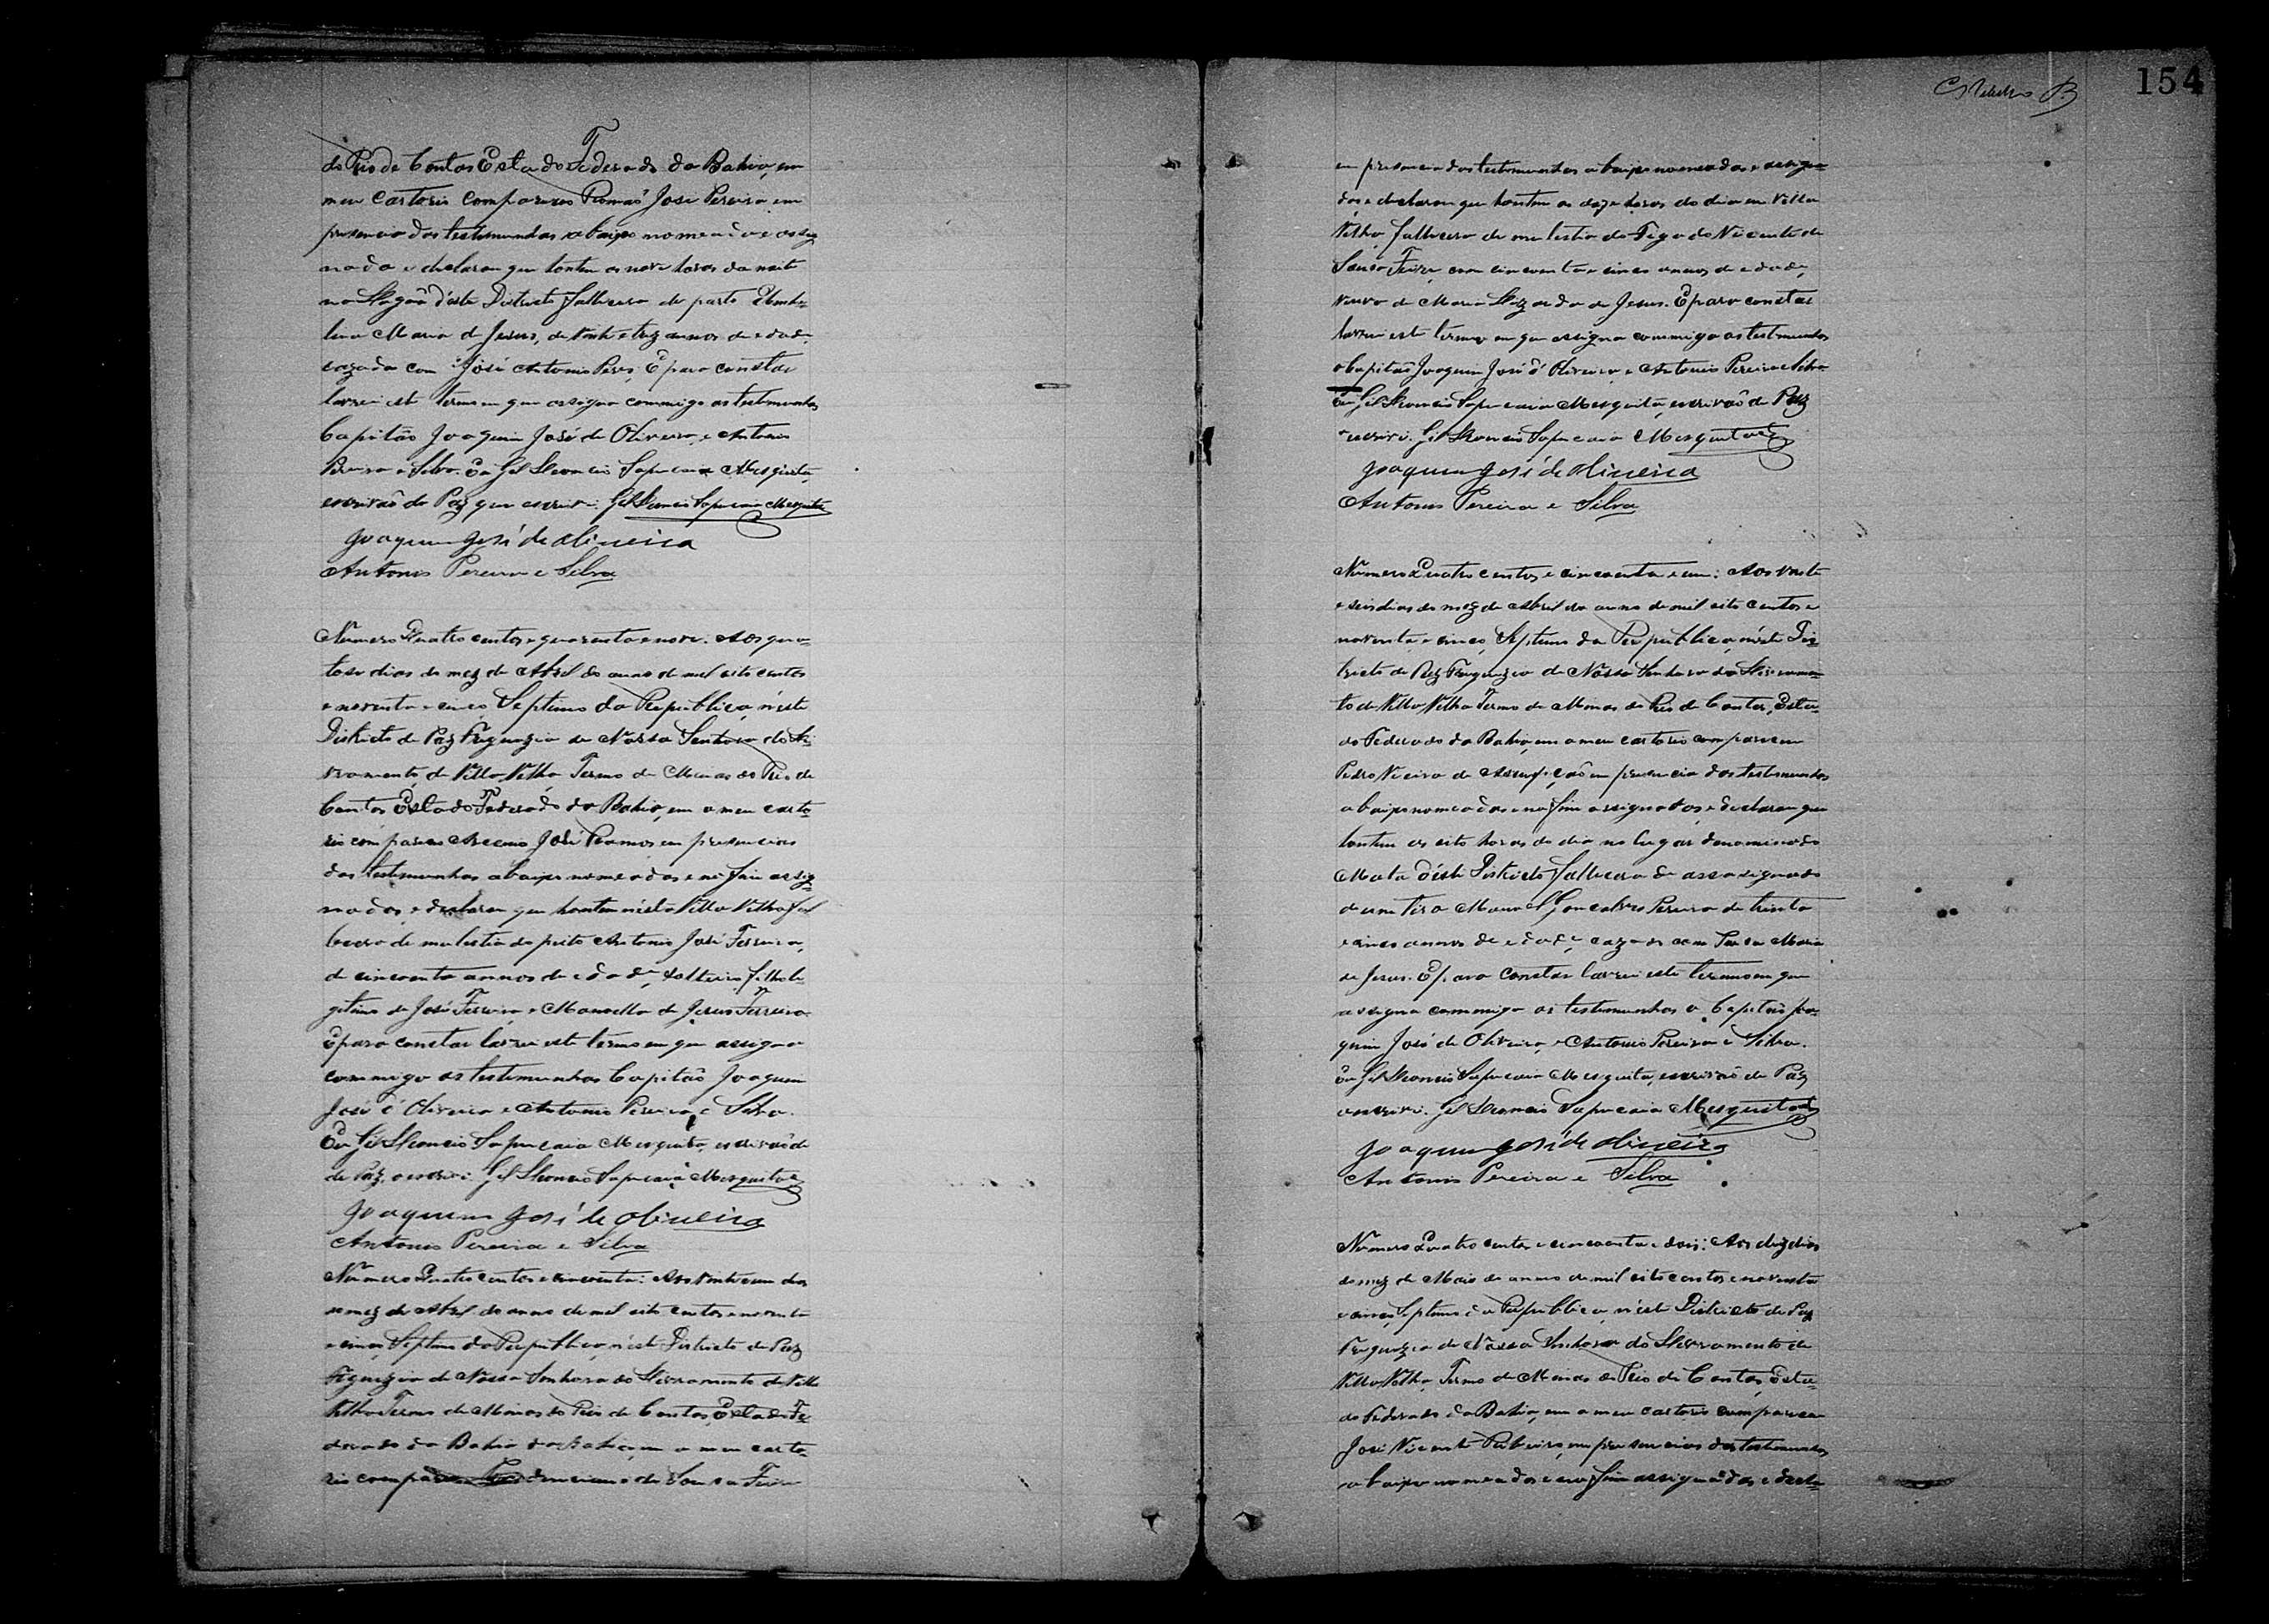 do Rio de Contas Estado Federado da Bahia, em
meu Cartorio compareceu Romaõ José Pereira em
presencia das testemunhas abaixo nomeadas e assig
nadas e declarou que hontem as nove horas da noite
no d'este Districto falleceu de parto
Maria de Jesus, de vinte e trez annos de edade,
cazada com José Antonio Pires, E para constar
lavrei este termo em que assigna commigo as testemunhas
Capitão Joaquim José de Oliveira, e Antonio
Pereira e Silva. Eu Gil Leoncio Sapucaia Mesquita,
escrivaõ de Paz que escrevi. Gil Leoncio Sapucaia Mesquita
Joaquim José de Oliveira
Antonio Pereira e Silva
Numero Quatro centos e quarenta e nove. Aos qua=
torse dias do mez de Abril do anno de mil oito centos
e noventa e cinco, Septimo da Republica, n'este
Districto de Paz Freguezia de Nossa Senhora do Li=
vramento de Villa Velha Termo de Minas do Rio de
Contas Estado Federado da Bahia, em o meu carto=
rio compareceu José Ramos em presencia
das testemunhas abaixo nomeadas e no fim assig=
nadas, e declarou que hontem n'esta Villa Velha fal
leceo de molestia do peito Antonio José Ferreira,
de cincoenta annos de edade, solteiro, filho le=
gitimo de José Ferreira e Manoella de Jesus Ferreira
E para constar lavrei este termo em que assigna
commigo as testemunhas Capitão Joaquim
José d'Oliveira e Antonio Pereira e Silva.
Eu Gil Leoncio Sapucaia Mesquita, escrivaõ de
de Paz, o escrevi. Gil Leoncio Sapucaia Mesquita
Joaquim José de Oliveira
Antonio Pereira e Silva
Numero Quatro centos e cincoenta: Aos vinte e um dias
do mez de Abril do anno de mil oito centos e noventa
e cinco, Septimo da Republica, n'este Districto de Paz
Freguezia de Nossa Senhora do Livramento de Villa
Velha Termo de Minas do Rio de Contas Estado Fe=
derado da Bahia da Bahia, em o meu carto=
rio de Sousa Freire
154
em presencia das testemunhas abaixo nomeadas e assigna=
das e declarou que hontem as doze horas do dia em Villa
Velha, falleceo de molestia do Figado Vicente de
Sousa Freire com cincoenta e cinco annos de edade,
viuvo de Maria de Jesus. E para constar
lavrei este termo em que assigna commigo as testemunhas
o Capitaõ Joaquim José d'Oliveira, e Antonio Pereira e Silva
Eu Gil Leoncio Sapucaia Mesquita, escrivaõ de Paz
o escrevi. Gil Leoncio Sapucaia Mesquita
Joaquim José de Oliveira
Antonio Pereira e Silva
Numero Quatro centos e cincoenta e um: Aos vinte
e seis dias do mez de Abril do anno de mil oito centos e
noventa e cinco, Septimo da Republica, n'este Dis=
tricto de Paz Freguezia de Nossa Senhora do Livramen=
to de Villa Velha Termo de Minas do Rio de Contas, Esta=
do Federado da Bahia, em o meu cartorio compareceu
Pedro Vieira de em presencia das testemunhas
abaixo nomeadas e no fim assignadas, e declarou que
hontem as oito horas do dia no lugar denominado
Mata d'este Districto falleceu de assasignado
de um tiro Manoel Gonçalves Pereira de trinta
e cinco annos de edade, cazado com Maria
de Jesus. E para constar lavrei este termo em que
assigna commigo as testemunhas o Capitaõ Joa=
quim José de Oliveira, e Antonio Pereira e Silva.
Eu Gil Leoncio Sapucaia Mesquita, escrivaõ de Paz
o escrevi. Gil Leoncio Sapucaia Mesquita
Joaquim José de Oliveira
Antonio Pereira e Silva
Numero Quatro centos e cincoenta e dois: Aos dez dias
do mez de Maio do anno de mil oito centos e noventa
e cinco, Septimo da Republica, n'este Districto de Paz
Freguezia de Nossa Senhora do Livramento de
Villa Velha, Termo de Minas do Rio de Contas, Esta=
do Federado da Bahia, em o meu cartorio compareceu
José Vicente Ribeiro, em presencia das testemunhas
abaixo nomeadas e no fim assignadas e decla=